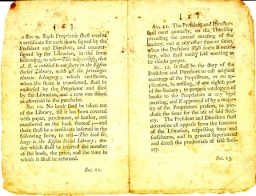 ( 6 )
Sec. 9. Each Proprietor shall receive
a certificate for each share, signed by the
President and Directors, and counter-
signed by the Librarian, in the form
following, to wit—This may certify, that
A. B. is entitled to one share in the Essex
Social Library, with all the privileges
thereto belonging; which certificate,
when the share is transferred, shall be
endorsed by the Proprietor and filed
by the Librarian, and a new one issued
as aforesaid to the purchaser.
Sec. 10. No book shall be taken out
of the Library, till it has been covered
with paper, parchment, or leather, and
numbered on the back thereof; and
there shall be a certificate inserted in the
following form, to wit—The book be-
longs to the Essex Social Library;
under which shall be inserted the number
of the book, the price, and the time in
which it shall be returned.
Sec. 11.
Sec. 11. The President and Directors
shall meet annually, on the
preceding the annual meeting of the
Society, and at any other time
when the President shall deem it neces-
sary, who shall notify said meeting as
he thinks proper.
Sec. 12. It shall be the duty of the
President and Directors to call
meetings of the Proprietors, on
application, in writing, of one eighth part
of the Society; to prepare catalogues of
books to be laid before the Proprietors at any legal
meeting, and if approved of by a majority
of the Proprietors present, to pur-
chase the same for the use of said Soci-
ety. The President and Directors shall
determine all appeals from the decisions
of the Librarian, respecting fines and
forfeitures, and in general superintend
and direct the prudentials of said Soci-
ety.
Sec. 13.